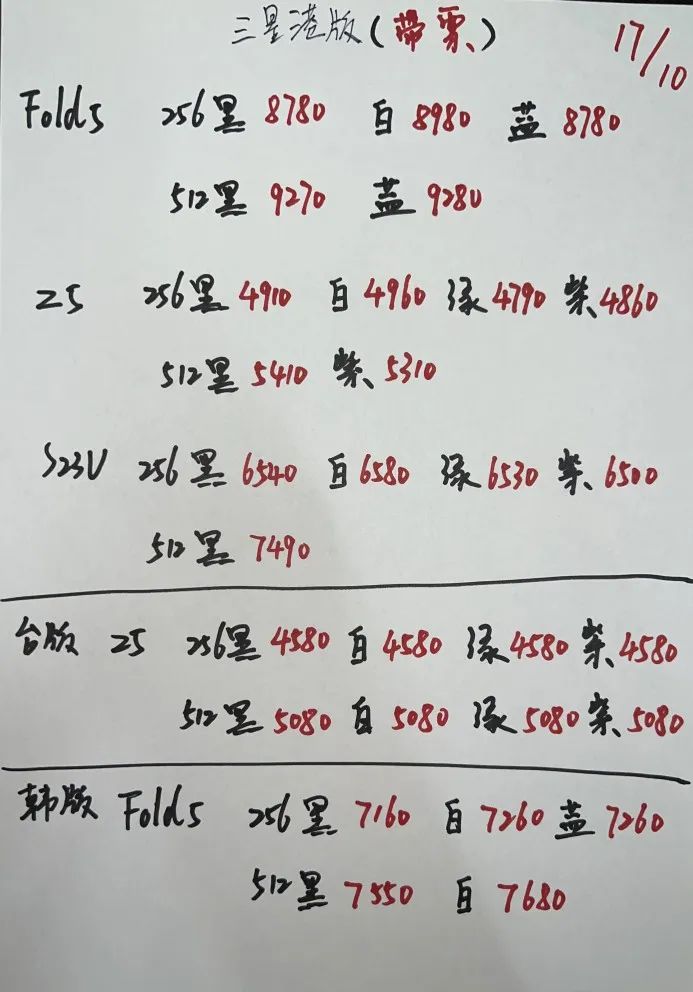 三星港版(带票)
17/10
Fold5 256黑 8780 白 8980 蓝 8780
512黑 9270 蓝 9280
Z5 256黑 4910 白 4960 绿 4790 紫 4860
512黑 5410 紫 5310
S23U 256黑 6540 白 6580 绿 6530 紫 6500
512黑 7490
台版 Z5 256黑 4580 白 4580 绿 4580 紫 4580
512黑 5080 白 5080 绿 5080 紫 5080
韩版 Fold5 256黑 7160 白 7260 蓝 7260
512黑 7550 白 7680